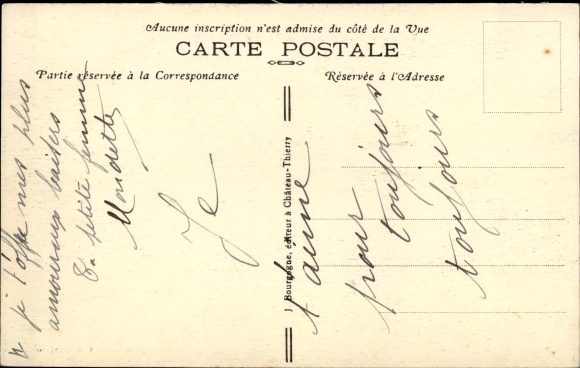 Aucune inscription n'est admise du côté de la Vue
CARTE POSTALE
Partie réservée à la Correspondance
Réservée à l'Adresse
J. Bourgogne, éditeur à Château-Thierry
Je
t'aime
pour
toujours
toujours
je t'offre mes plus
amoureux baisers
Ta petite femme